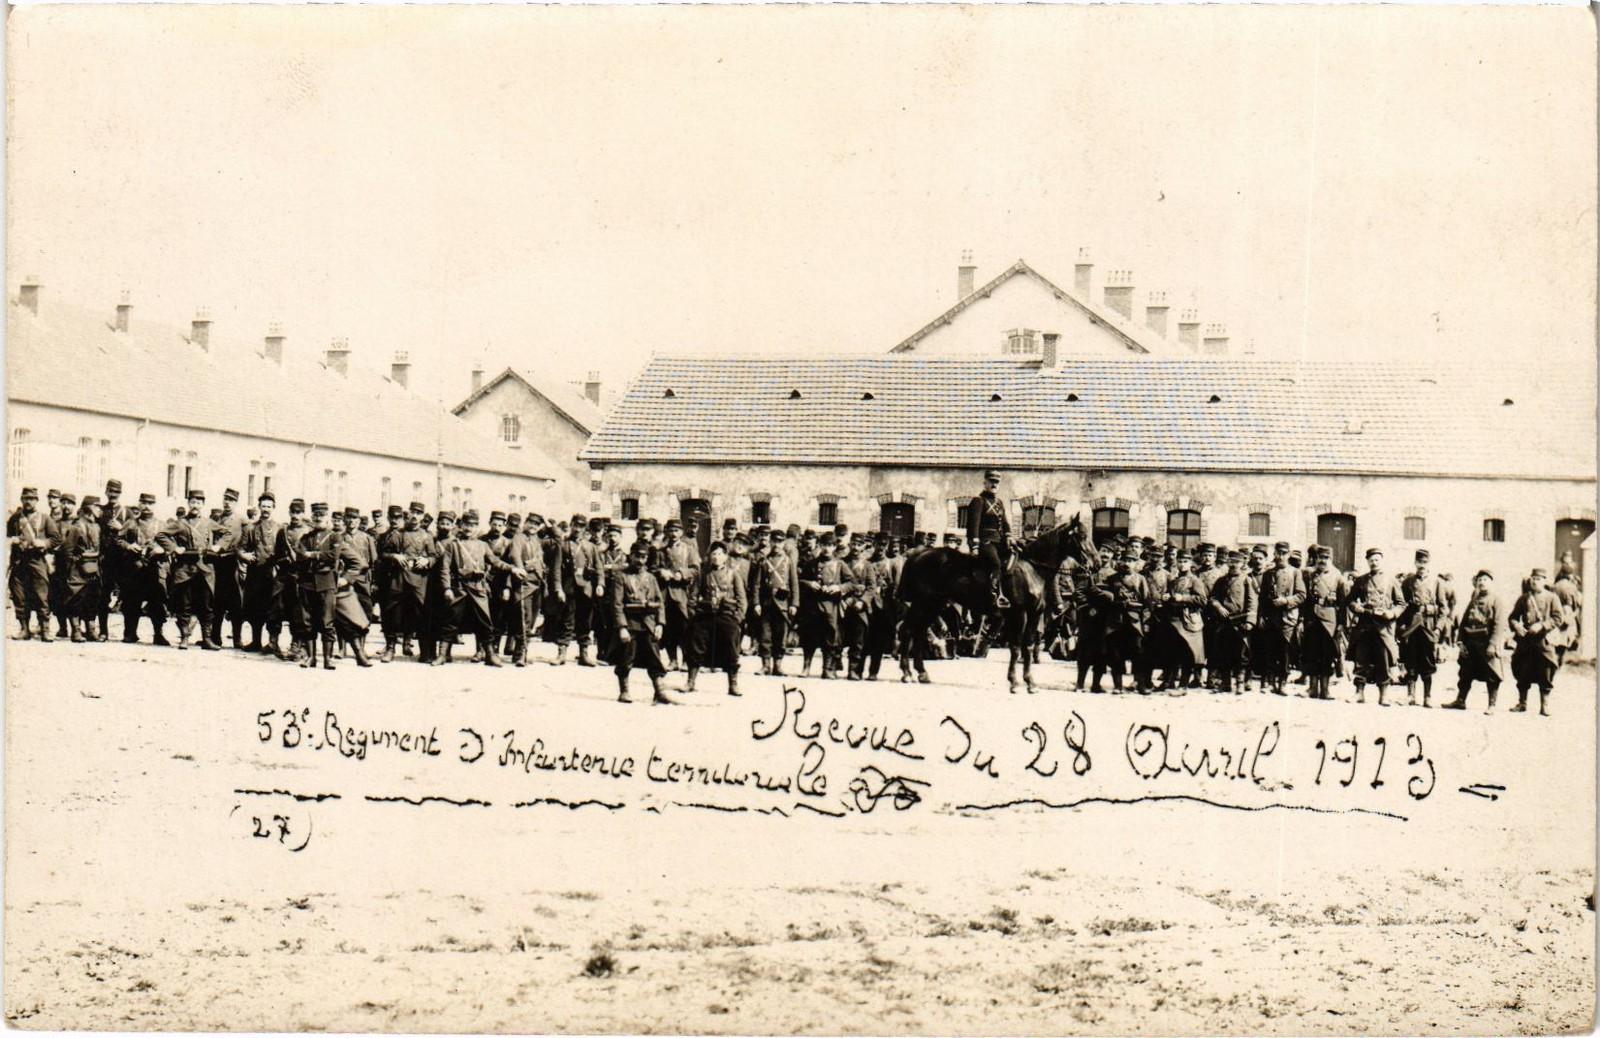 53e. Régiment D'Infanterie territoriale
Revue Du 28 Avril 1913 -
(27)